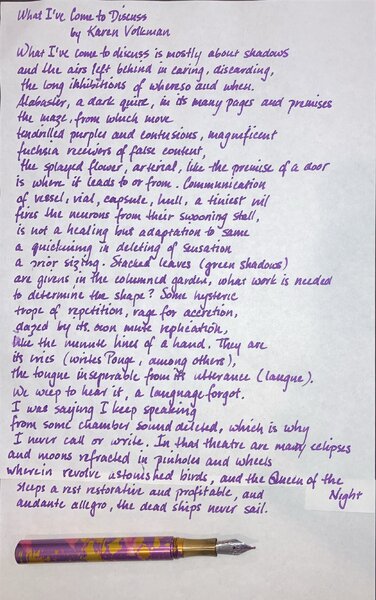 What I've Come to Discuss
by Karen Volkman
What I've come to discuss is mostly about shadows
and the airs left behind in caring, discarding,
the long inhibitions of whereso and when.
Alabaster, a dark quire, in its many pages and premises
the maze, from which move
tendrilled purples and contusions, magnificent
fuchsia receivers of false content,
the splayed flower, arterial, like the premise of a door
is where it leads to or from. Communication
of vessel, vial, capsule, hull, a tiniest nil
fires the neurons from their swooning stall,
is not a healing but adaptation to same
a quickening in deleting of sensation
a prior sizing. Stacked leaves (green shadows)
are givens in the columned garden, what work is needed
to determine the shape? Some hysteric
trope of repetition, rage for accretion,
dazed by its own mute replication,
like the minute lines of a hand. They are
its cries (writes Ponge, among others),
the tongue inseperable from its utterance (langue).
We weep to hear it, a language forgot.
I was saying I keep speaking
from some chamber sound deleted, which is why
I never call or write. In that theatre are many eclipses
and moons refracted in pinholes and wheels
wherein revolve astonished birds, and the Queen of the Night
sleeps a rest restorative and profitable, and
andante allegro, the dead ships never sail.